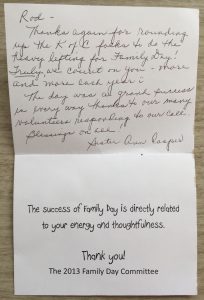 Rod -
Thanks again for rounding
up the K of C folks to do the
heavy lifting for Family Day!
Truly, we count on you - more
and more each year!
The day was a grand success
in every way thanks to our many
volunteers responding to our call.
Blessings on all!
Sister Ann Casper
The success of Family Day is directly related
to your energy and thoughtfulness.
Thank you!
The 2013 Family Day Committee